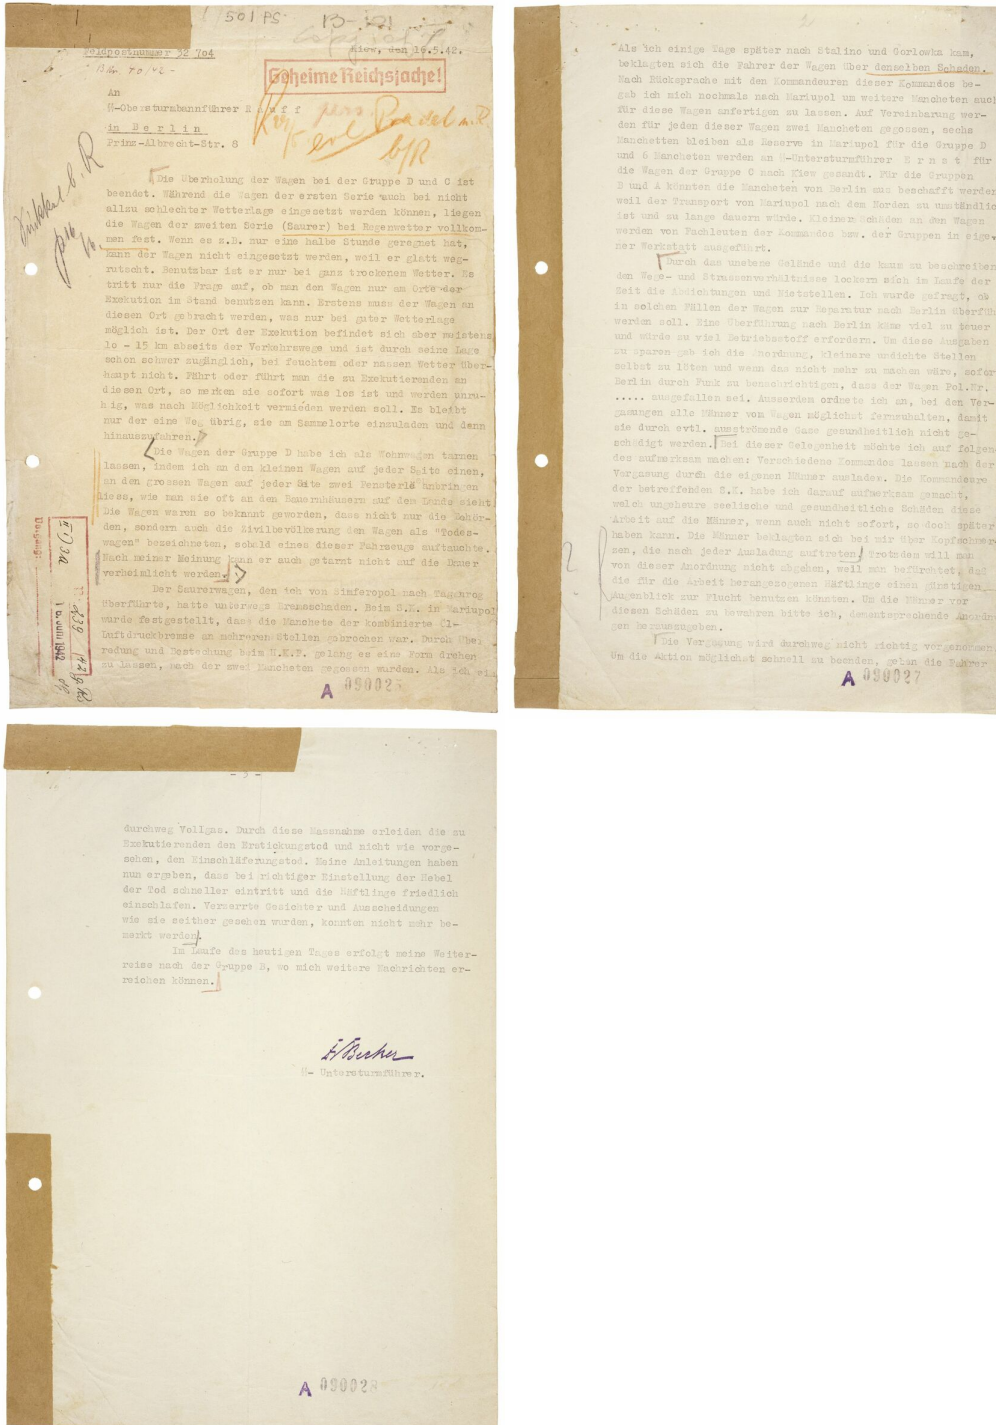 501 PS
Feldpostnummer 32 704
Kiew, den 16.5.42.
B Nr. 40/42 -
Geheime Reichssache!
An
SS-Obersturmbannführer R a u f f
in B e r l i n
Prinz-Albrecht-Str. 8
pers.
Pradel n.R.
b/R
Die Überholung der Wagen bei der Gruppe D und C ist
beendet. Während die Wagen der ersten Serie auch bei nicht
allzu schlechter Wetterlage eingesetzt werden können, liegen
die Wagen der zweiten Serie (Saurer) bei Regenwetter vollkom-
men fest. Wenn es z.B. nur eine halbe Stunde geregnet hat,
kann der Wagen nicht eingesetzt werden, weil er glatt weg-
rutscht. Benutzbar ist er nur bei ganz trockenem Wetter. Es
tritt nur die Frage auf, ob man den Wagen nur am Orte der
Exekution im Stand benutzen kann. Erstens muss der Wagen an
diesen Ort gebracht werden, was nur bei guter Wetterlage
möglich ist. Der Ort der Exekution befindet sich aber meistens
10 - 15 km abseits der Verkehrswege und ist durch seine Lage
schon schwer zugänglich, bei feuchtem oder nassen Wetter über-
haupt nicht. Fährt oder führt man die zu Exekutierenden an
diesen Ort, so merken sie sofort was los ist und werden unru-
hig, was nach Möglichkeit vermieden werden soll. Es bleibt
nur der eine Weg übrig, sie am Sammelorte einzuladen und dann
hinauszufahren.
Die Wagen der Gruppe D habe ich als Wohnwagen tarnen
lassen, indem ich an den kleinen Wagen auf jeder Seite einen,
an den grossen Wagen auf jeder Seite zwei Fensterlä anbringen
liess, wie man sie oft an den Bauernhäusern auf dem Lande sieht
Die Wagen waren so bekannt geworden, dass nicht nur die Behör-
den, sondern auch die Zivilbevölkerung den Wagen als "Todes-
wagen" bezeichneten, sobald eines dieser Fahrzeuge auftauchte.
Nach meiner Meinung kann er auch getarnt nicht auf die Dauer
verheimlicht werden.
Der Saurerwagen, den ich von Simferopol nach Taganrog
überführte, hatte unterwegs Bremsschaden. Beim S.K. in Mariupol
wurde festgestellt, dass die Manchete der kombinierte Öl-
Luftdruckbremse an mehreren Stellen gebrochen war. Durch Über
redung und Bestechung beim H.K.P. gelang es eine Form drehen
zu lassen, nach der zwei Mancheten gegossen wurden. Als ich
A 090025
Als ich einige Tage später nach Stalino und Gorlowka kam,
beklagten sich die Fahrer der Wagen über denselben Schaden.
Nach Rücksprache mit den Kommandeuren dieser Kommandos be-
gab ich mich nochmals nach Mariupol um weitere Mancheten auch
für diese Wagen anfertigen zu lassen. Auf Vereinbarung wer-
den für jeden dieser Wagen zwei Mancheten gegossen, sechs
Manchetten bleiben als Reserve in Mariupol für die Gruppe D
und 6 Mancheten werden an SS-Untersturmführer E r n s t für
die Wagen der Gruppe C nach Kiew gesandt. Für die Gruppen
B und A könnten die Mancheten von Berlin aus beschafft werden
weil der Transport von Mariupol nach dem Norden zu umständlic
ist und zu lange dauern würde. Kleinere Schäden an den Wagen
werden von Fachleuten der Kommandos bzw. der Gruppen in eige-
ner Werkstatt ausgeführt.
Durch das unebene Gelände und die kaum zu beschreiben
den Wege- und Strassenverhältnisse lockern sich im Laufe der
Zeit die Abdichtungen und Nietstellen. Ich wurde gefragt, ob
in solchen Fällen der Wagen zur Reparatur nach Berlin überfüh
werden soll. Eine Überführung nach Berlin käme viel zu teuer
und würde zu viel Betriebsstoff erfordern. Um diese Ausgaben
zu sparen gab ich die Anordnung, kleinere undichte Stellen
selbst zu löten und wenn das nicht mehr zu machen wäre, sofor
Berlin durch Funk zu benachrichtigen, dass der Wagen Pol.Nr.
..... ausgefallen sei. Ausserdem ordnete ich an, bei den Ver-
gasungen alle Männer vom Wagen möglichst fernzuhalten, damit
sie durch evtl. ausströmende Gase gesundheitlich nicht ge-
schädigt werden. Bei dieser Gelegenheit möchte ich auf folgen
des aufmerksam machen: Verschiedene Kommandos lassen nach der
Vergasung durch die eigenen Männer ausladen. Die Kommandeure
der betreffenden S.K. habe ich darauf aufmerksam gemacht,
welch ungeheure seelische und gesundheitliche Schäden diese
Arbeit auf die Männer, wenn auch nicht sofort, so doch später
haben kann. Die Männer beklagten sich bei mir über Kopfschmer
zen, die nach jeder Ausladung auftreten. Trotzdem will man
von dieser Anordnung nicht abgehen, weil man befürchtet, daß
die für die Arbeit herangezogenen Häftlinge einen günstigen
Augenblick zur Flucht benutzen könnten. Um die Männer vor
diesen Schäden zu bewahren bitte ich, dementsprechende Anordn
gen herauszugeben.
Die Vergasung wird durchweg nicht richtig vorgenommen
Um die Aktion möglichst schnell zu beenden, geben die Fahrer
A 090027
- 3 -
durchweg Vollgas. Durch diese Massnahme erleiden die zu
Exekutierenden den Erstickungstod und nicht wie vorge-
sehen, den Einschläferungstod. Meine Anleitungen haben
nun ergeben, dass bei richtiger Einstellung der Hebel
der Tod schneller eintritt und die Häftlinge friedlich
einschlafen. Verzerrte Gesichter und Ausscheidungen
wie sie seither gesehen wurden, konnten nicht mehr be-
merkt werden.
Im Laufe des heutigen Tages erfolgt meine Weiter-
reise nach der Gruppe B, wo mich weitere Nachrichten er-
reichen können.
Dr Becker
SS- Untersturmführer.
A 090028